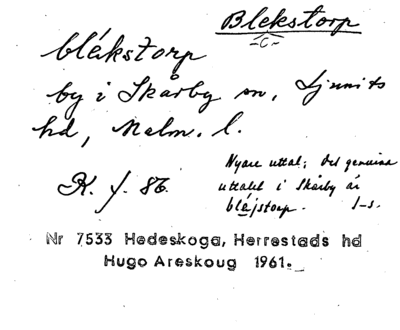 Blekstorp
-c-
blákstorp
by i Skårby sn, Ljunits
hd, Malm. l.
K. f. 86.
Nyare uttal; Det genuina
uttalet i Skårby är
blájstorp. I-s.
Nr 7533 Hedeskoga, Herrestads hd
Hugo Areskoug 1961.